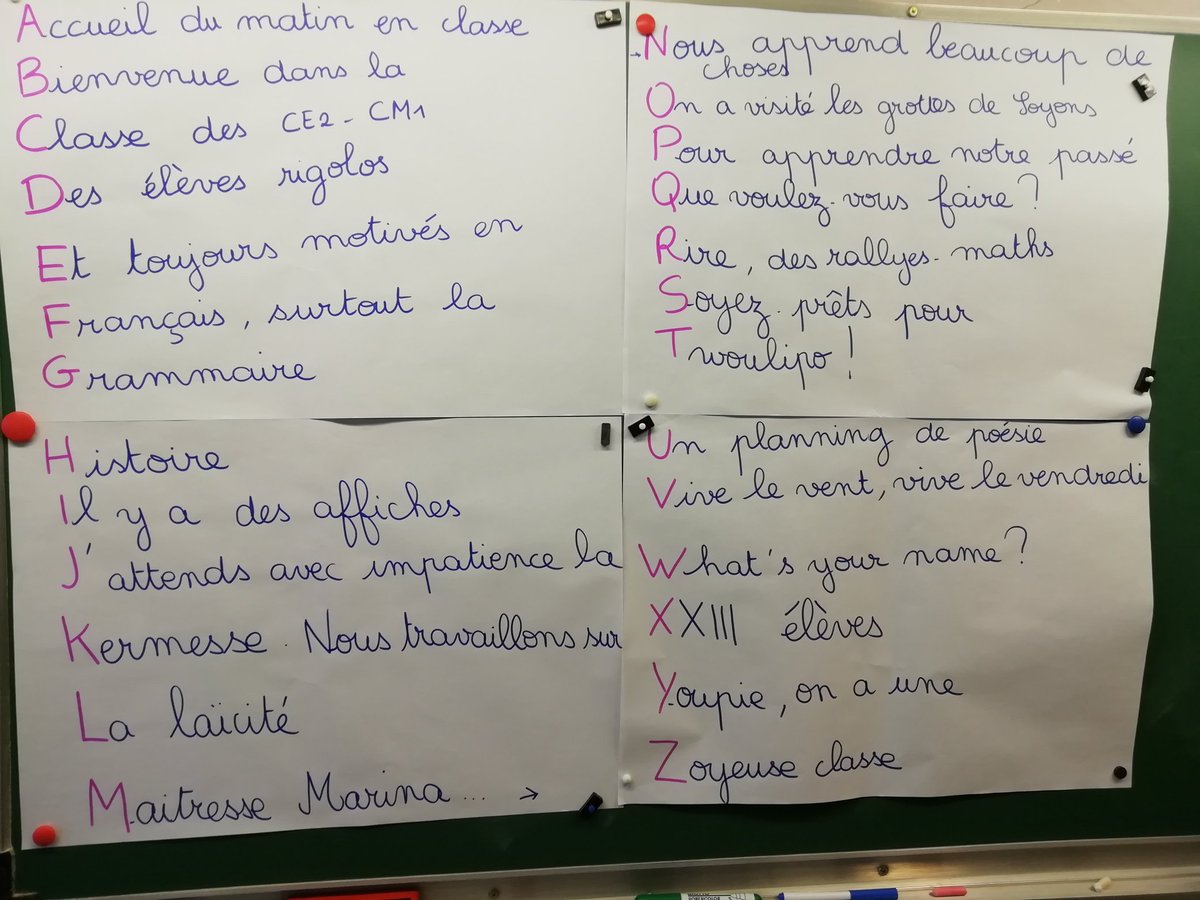 Accueil du matin en classe
Bienvenue dans la
Classe des CE2 - CM1
Des élèves rigolos
Et toujours motivés en
Français, surtout la
Grammaire
Histoire
Il y a des affiches
J'attends avec impatience la
Kermesse. Nous travaillons sur
La laïcité
Maitresse Marina... →
Nous apprend beaucoup de
choses
On a visité les grottes de Soyons
Pour apprendre notre passé
Que voulez-vous faire ?
Rire, des rallyes-maths
Soyez-prêts pour
Twoulipo !
Un planning de poésie
Vive le vent, vive le vendredi
What's your name ?
XXIII élèves
Youpie, on a une
Zoyeuse classe